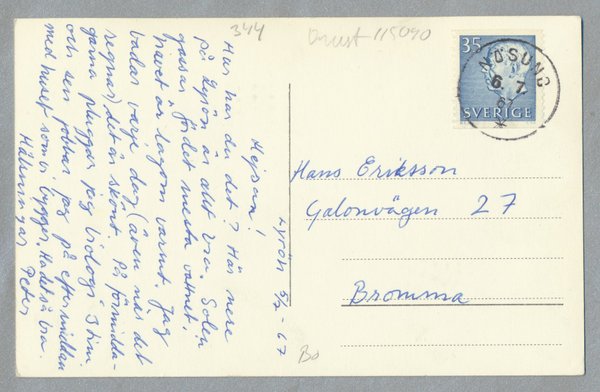 344
Orust 115090
35
SVERIGE
NÖSUND
6. 7.
67
Lyrön 5/7 - 67
Hejsan!
Hur har du det? Här nere
på Lyrön är allt bra. Solen
gassar för det mesta vattnet,
havet är lagom varmt. Jag
badar varje dag (även när det
regnar) det är skönt. På förmidda-
garna pluggar jag biologi 3 tim.
och sen jobbar jag på eftermiddan
med huset som vi bygger. Ha det så bra.
Hälsningar Peter
Hans Eriksson
Galonvägen 27
Bromma
Bo